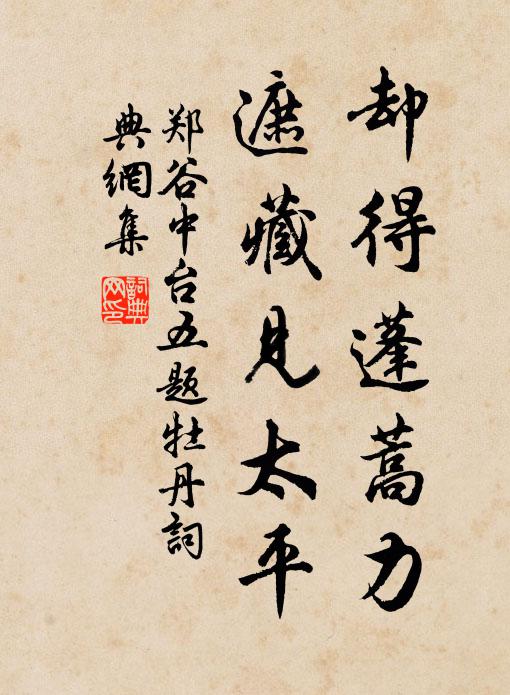 却得蓬蒿力
遮藏见太平
郑谷中台五题牡丹詞
典網集
詞典网印